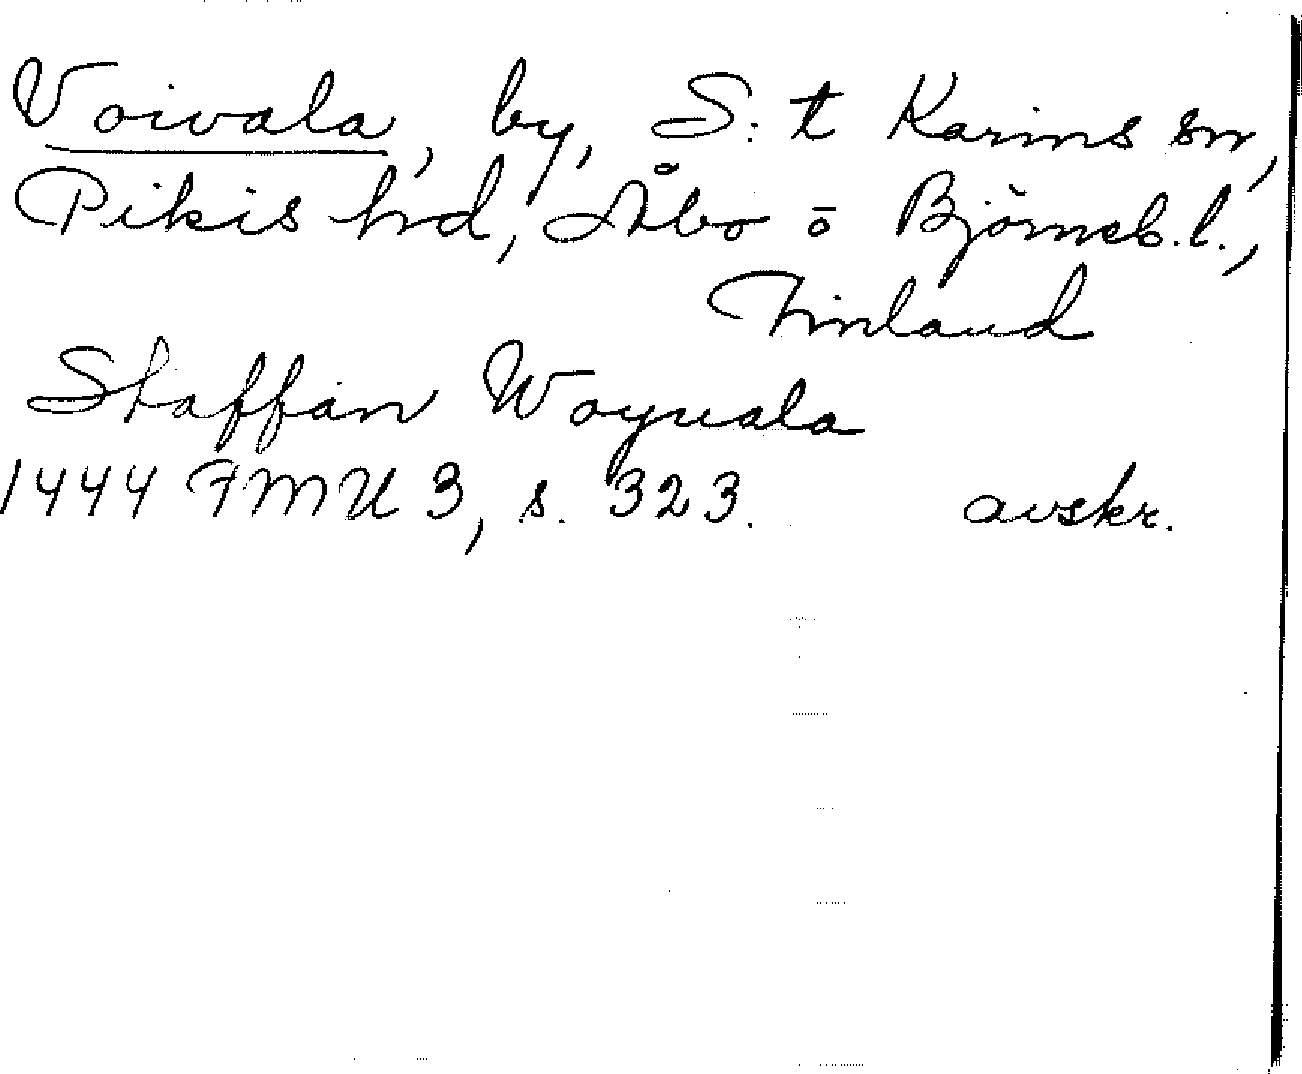 Voivala, by, S:t Karins sn,
Pikis hd, Åbo o Björneb. l.,
Finland
Staffan Woyuala
1444 FMU 3, s. 323. avskr.